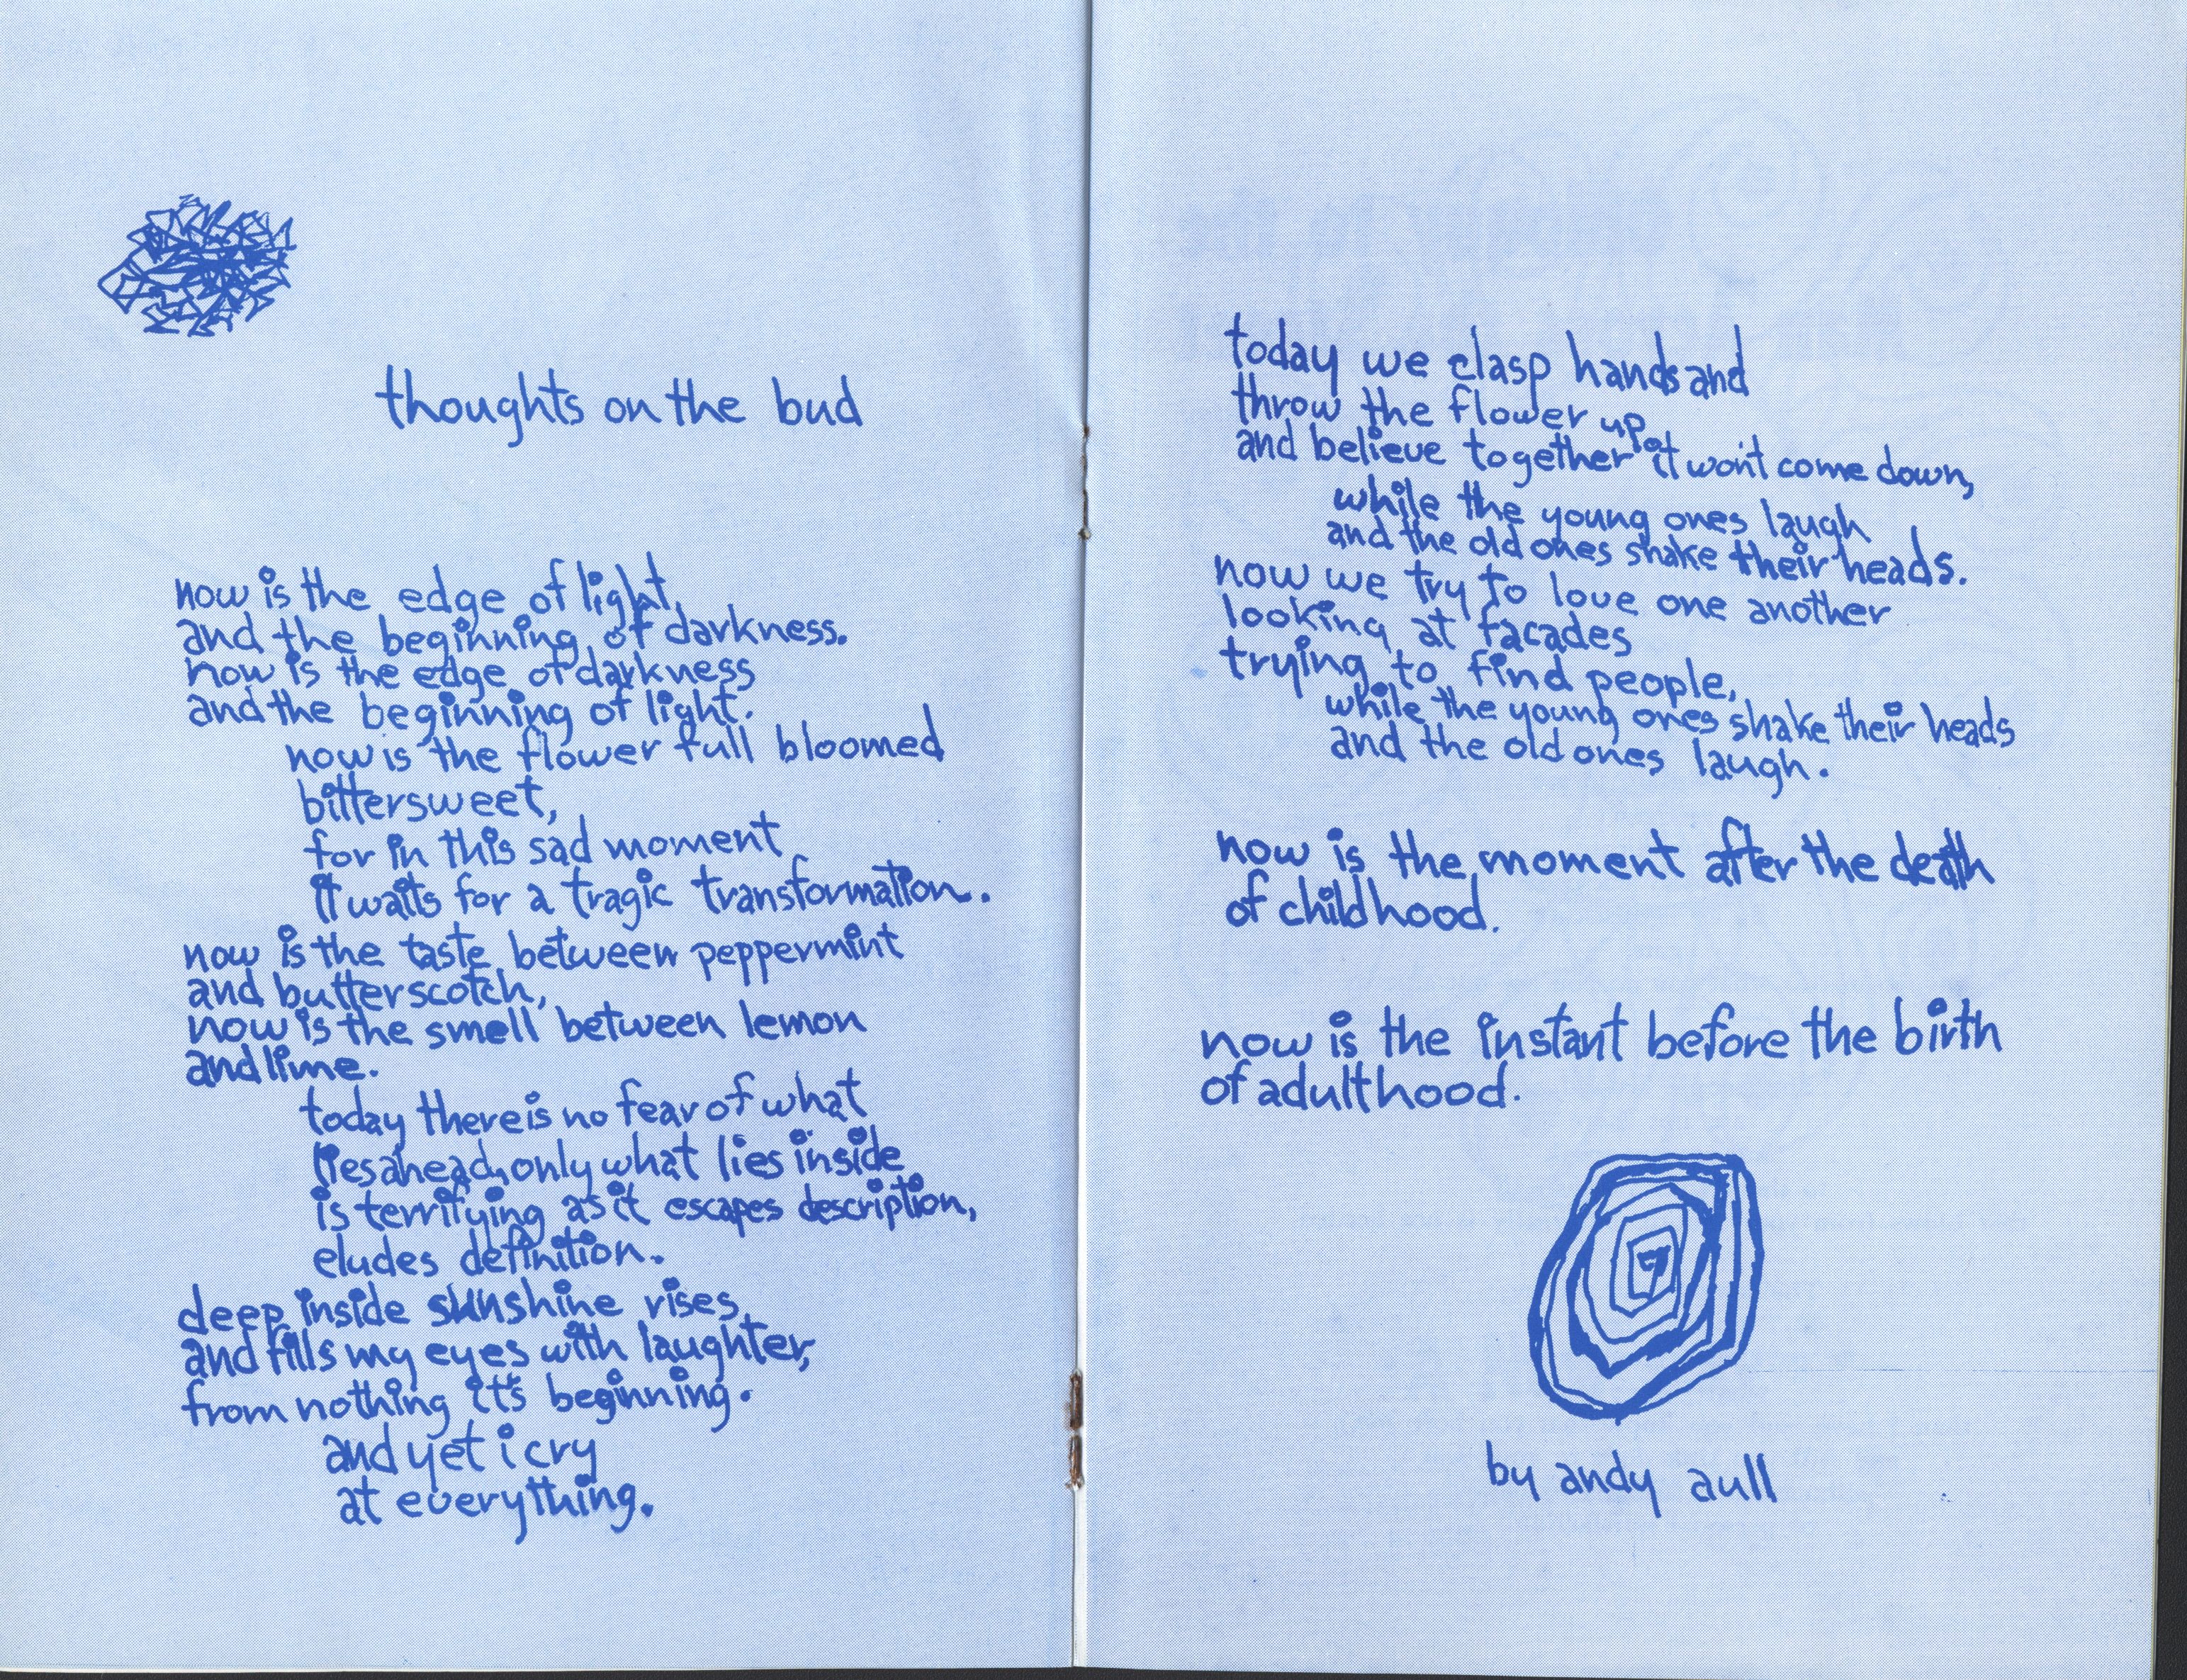 thoughts on the bud
now is the edge of light,
and the beginning of darkness.
now is the edge of darkness
and the beginning of light.
now is the flower full bloomed
bittersweet,
for in this sad moment
it waits for a tragic transformation.
now is the taste between peppermint
and butterscotch,
now is the smell between lemon
and lime.
today there is no fear of what
lies ahead, only what lies inside
is terrifying as it escapes description,
eludes definition.
deep inside sunshine rises
and fills my eyes with laughter,
from nothing it's beginning.
and yet i cry
at everything.
today we clasp hands and
throw the flower up
and believe together it won't come down,
while the young ones laugh
and the old ones shake their heads.
now we try to love one another
looking at facades
trying to find people,
while the young ones shake their heads
and the old ones laugh.
now is the moment after the death
of childhood.
now is the instant before the birth
of adulthood.
by andy aull